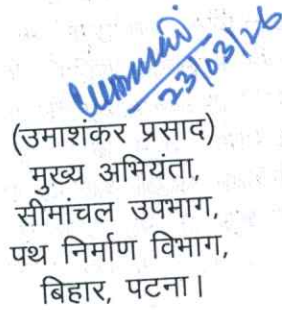 23/03/26
(उमाशंकर प्रसाद)
मुख्य अभियंता,
सीमांचल उपभाग,
पथ निर्माण विभाग,
बिहार, पटना।